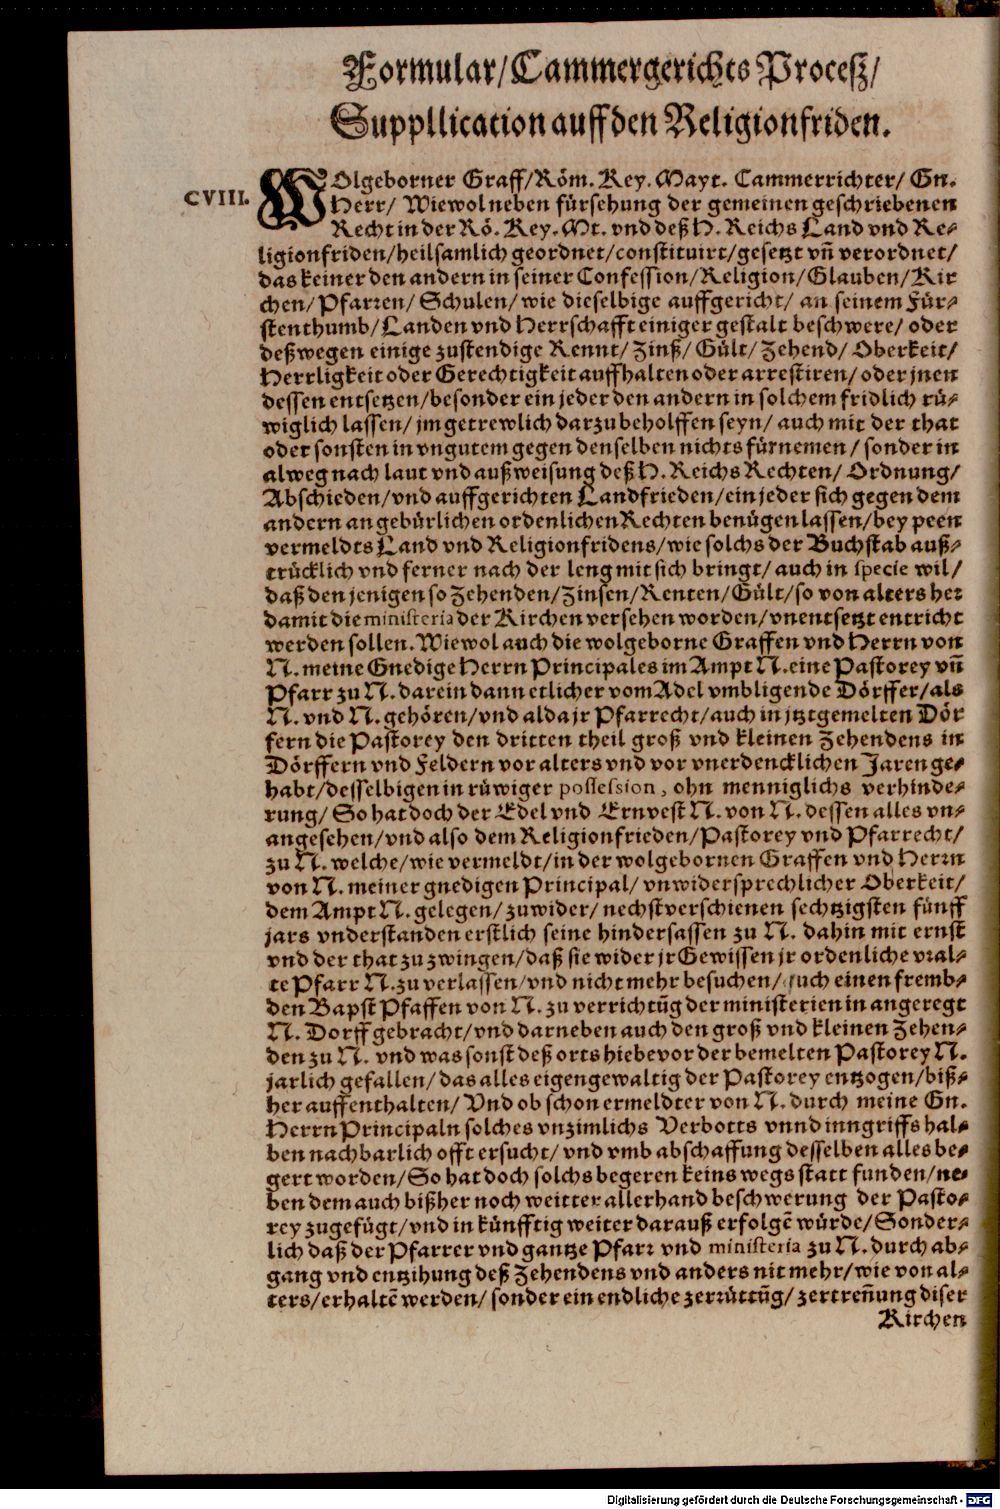 Formular/Cammergerichts Proceſz/
Suppllication auff den Religionfriden.
CVIII.
WOlgeborner Graff/Röm. Key. Mayt. Cammerrichter/ Gn.
Herr/ Wiewol neben fürsehung der gemeinen geschriebenen
Recht in der Rö. Key. Mt. vnd deß H. Reichs Land vnd Re-
ligionfriden/heilsamlich geordnet/constituirt/gesetzt vn̄ verordnet/
das keiner den andern in seiner Confession/Religion/Glauben/Kir
chen/Pfarren/ Schulen/wie dieselbige auffgericht/ an seinem Für-
stenthumb/Landen vnd Herrschafft einiger gestalt beschwere/ oder
deßwegen einige zustendige Rennt/Zinß/ Gült/Zehend/ Oberkeit/
Herrligkeit oder Gerechtigkeit auffhalten oder arrestiren/oder jnen
dessen entsetzen/besonder ein jeder den andern in solchem fridlich rü-
wiglich lassen/ jm getrewlich darzu beholffen seyn/ auch mit der that
oder sonsten in vngutem gegen denselben nichts fürnemen/ sonder in
alweg nach laut vnd außweisung deß H. Reichs Rechten/ Ordnung/
Abschieden/vnd auffgerichten Landfrieden/ein jeder sich gegen dem
andern an gebürlichen ordenlichen Rechten benügen lassen/bey peen
vermeldts Land vnd Religionfridens/wie solchs der Buchstab auß-
trücklich vnd ferner nach der leng mit sich bringt/ auch in specie wil/
daß den jenigen so Zehenden/Zinsen/Renten/Gült/so von alters her
damit die ministeria der Kirchen versehen worden/vnentsetzt entricht
werden sollen. Wiewol auch die wolgeborne Graffen vnd Herrn von
N. meine Gnedige Herrn Principales im Ampt N. eine Pastorey vn̄
Pfarr zu N. darein dann etlicher vom Adel vmbligende Dörffer/als
N. vnd N. gehören/vnd alda jr Pfarrecht/auch in jtztgemelten Dör
fern die Pastorey den dritten theil groß vnd kleinen Zehendens in
Dörffern vnd Feldern vor alters vnd vor vnerdencklichen Jaren ge-
habt/desselbigen in rüwiger possession, ohn menniglichs verhinde-
rung/ So hat doch der Edel vnd Ernvest N. von N. dessen alles vn-
angesehen/vnd also dem Religionfrieden/Pastorey vnd Pfarrecht/
zu N. welche/wie vermeldt/in der wolgebornen Graffen vnd Herrn
von N. meiner gnedigen Principal/ vnwidersprechlicher Oberkeit/
dem Ampt N. gelegen/ zuwider/ nechstverschienen sechtzigsten fünff
jars vnderstanden erstlich seine hindersassen zu N. dahin mit ernst
vnd der that zu zwingen/daß sie wider jr Gewissen jr ordenliche vral-
te Pfarr N. zu verlassen/vnd nicht mehr besuchen/ auch einen fremb-
den Bapst Pfaffen von N. zu verrichtūg der ministerien in angeregt
N. Dorff gebracht/vnd darneben auch den groß vnd kleinen Zehen-
den zu N. vnd was sonst deß orts hiebevor der bemelten Pastorey N.
jarlich gefallen/das alles eigengewaltig der Pastorey entzogen/biß-
her auffenthalten/ Vnd ob schon ermeldter von N. durch meine Gn.
Herrn Principaln solches vnzimlichs Verbotts vnnd inngriffs hal-
ben nachbarlich offt ersucht/ vnd vmb abschaffung desselben alles be-
gert worden/So hat doch solchs begeren keins wegs statt funden/ne-
ben dem auch bißher noch weitter allerhand beschwerung der Pasto-
rey zugefügt/vnd in künfftig weiter darauß erfolgē würde/Sonder-
lich daß der Pfarrer vnd gantze Pfarr vnd ministeria zu N. durch ab-
gang vnd entzihung deß Zehendens vnd anders nit mehr/wie von al-
ters/erhaltē werden/ sonder ein endliche zerrüttūg/ zertren̄ung diser
Kirchen
Digitalisierung gefördert durch die Deutsche Forschungsgemeinschaft - DFG